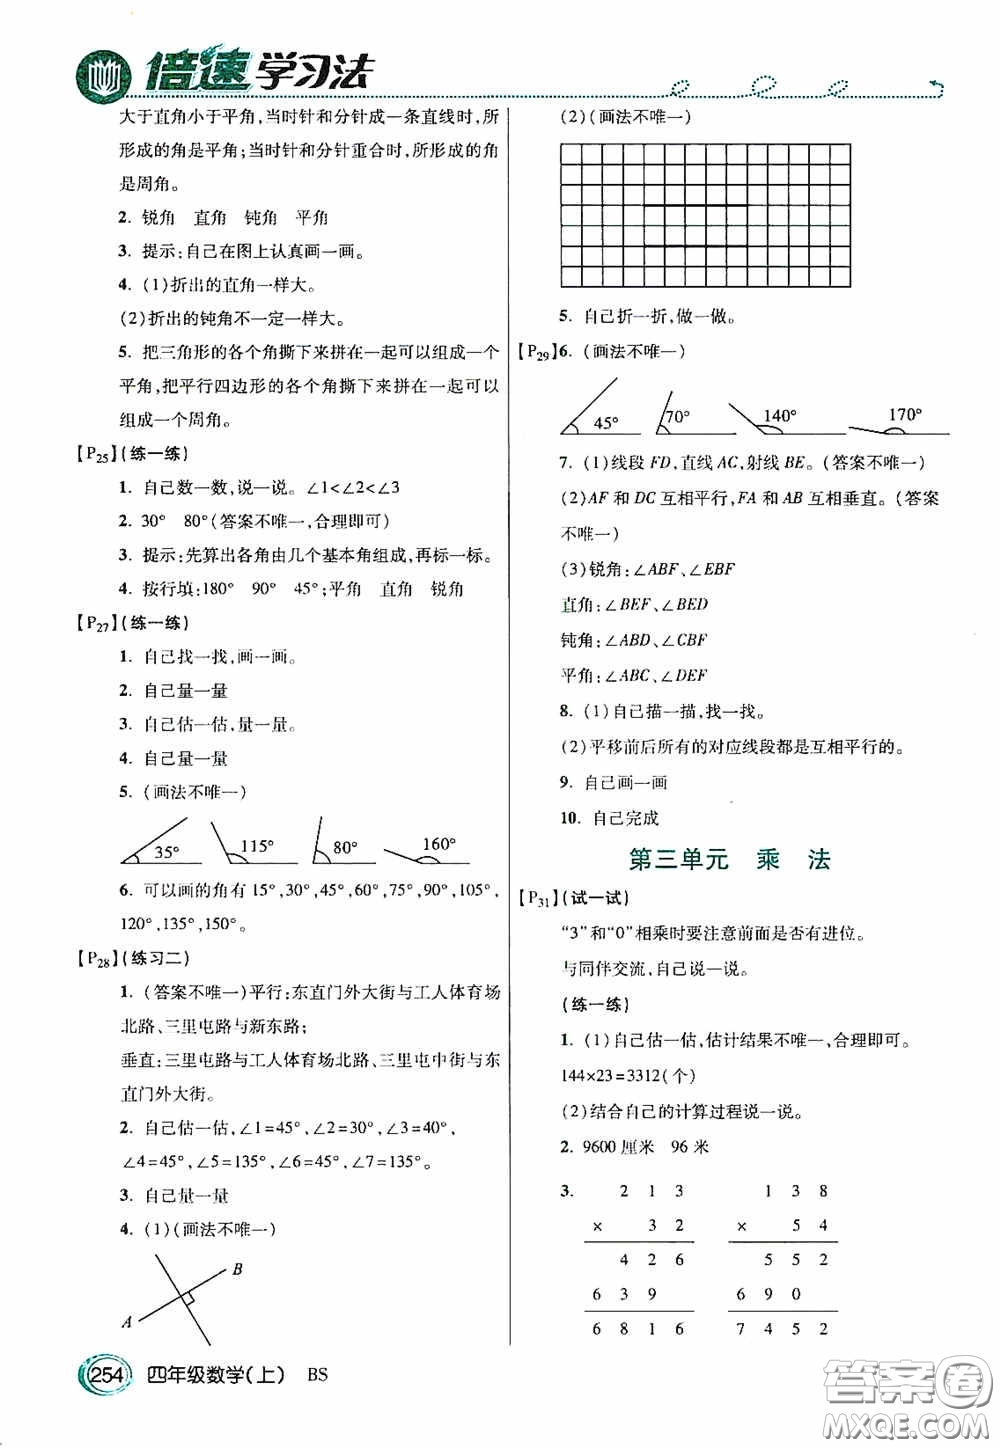 倍速学习法
大于直角小于平角,当时针和分针成一条直线时,所
形成的角是平角;当时针和分针重合时,所形成的角
是周角。
2. 锐角 直角 钝角 平角
3. 提示:自己在图上认真画一画。
4. (1)折出的直角一样大。
(2)折出的钝角不一定一样大。
5. 把三角形的各个角撕下来拼在一起可以组成一个
平角,把平行四边形的各个角撕下来拼在一起可以
组成一个周角。
【P25】(练一练)
1. 自己数一数,说一说。∠1<∠2<∠3
2. 30° 80°(答案不唯一,合理即可)
3. 提示:先算出各角由几个基本角组成,再标一标。
4. 按行填:180° 90° 45°;平角 直角 锐角
【P27】(练一练)
1. 自己找一找,画一画。
2. 自己量一量
3. 自己估一估,量一量。
4. 自己量一量
5. (画法不唯一)
35° 115° 80° 160°
6. 可以画的角有 15°,30°,45°,60°,75°,90°,105°,
120°,135°,150°。
【P28】(练习二)
1. (答案不唯一)平行:东直门外大街与工人体育场
北路、三里屯路与新东路;
垂直:三里屯路与工人体育场北路、三里屯中街与东
直门外大街。
2. 自己估一估,∠1=45°,∠2=30°,∠3=40°,
∠4=45°,∠5=135°,∠6=45°,∠7=135°。
3. 自己量一量
4. (1)(画法不唯一)
A B
(2)(画法不唯一)
5. 自己折一折,做一做。
【P29】6. (画法不唯一)
45° 70° 140° 170°
7. (1)线段 FD,直线 AC,射线 BE。(答案不唯一)
(2)AF 和 DC 互相平行,FA 和 AB 互相垂直。(答案
不唯一)
(3)锐角:∠ABF、∠EBF
直角:∠BEF、∠BED
钝角:∠ABD、∠CBF
平角:∠ABC、∠DEF
8. (1)自己描一描,找一找。
(2)平移前后所有的对应线段都是互相平行的。
9. 自己画一画
10. 自己完成
第三单元 乘 法
【P31】(试一试)
“3”和“0”相乘时要注意前面是否有进位。
与同伴交流,自己说一说。
(练一练)
1. (1)自己估一估,估计结果不唯一,合理即可。
144×23=3312(个)
(2)结合自己的计算过程说一说。
2. 9600 厘米 96 米
3. 2 1 3 1 3 8
× 3 2 × 5 4
4 2 6 5 5 2
6 3 9 6 9 0
6 8 1 6 7 4 5 2
254 四年级数学(上) BS
答案圈
MXQE.COM